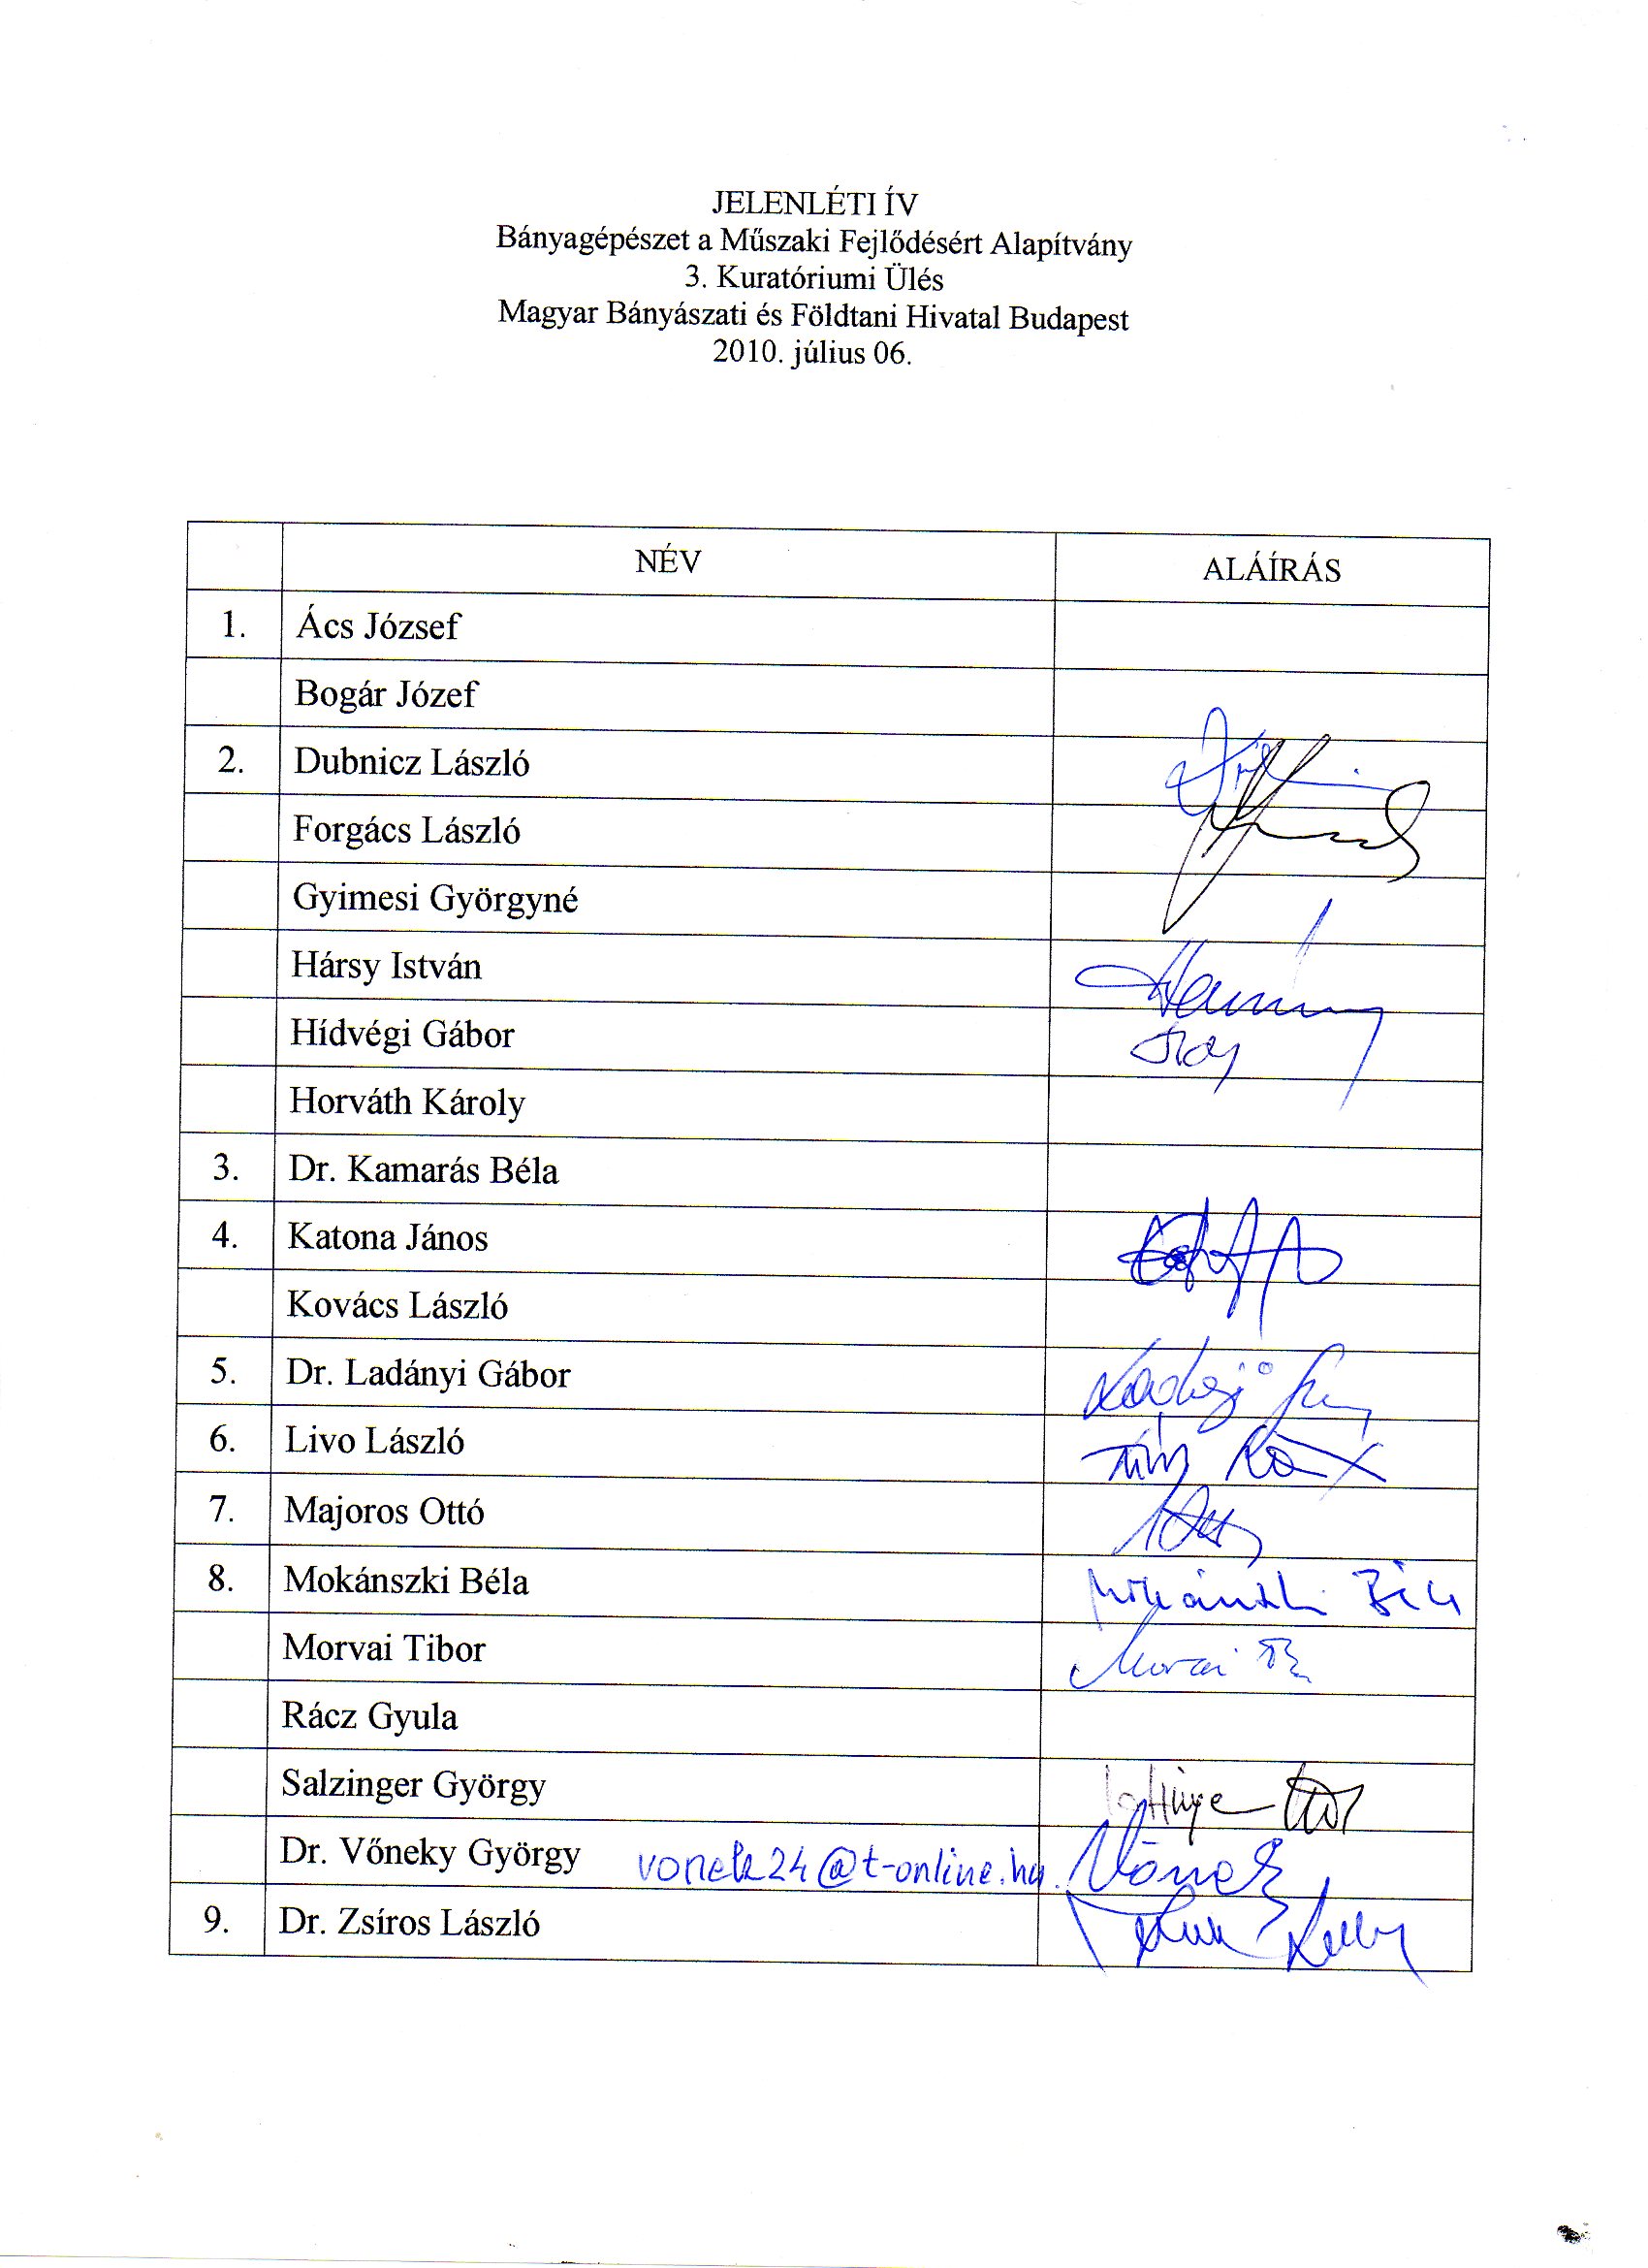 JELENLÉTI ÍV
Bányagépészet a Műszaki Fejlődésért Alapítvány
3. Kuratóriumi Ülés
Magyar Bányászati és Földtani Hivatal Budapest
2010. július 06.
NÉV ALÁÍRÁS
1. Ács József
Bogár Józef
2. Dubnicz László
Forgács László
Gyimesi Györgyné
Hársy István
Hídvégi Gábor
Horváth Károly
3. Dr. Kamarás Béla
4. Katona János
Kovács László
5. Dr. Ladányi Gábor
6. Livo László
7. Majoros Ottó
8. Mokánszki Béla
Morvai Tibor
Rácz Gyula
Salzinger György
Dr. Vőneky György vonek24@t-online.hu
9. Dr. Zsíros László